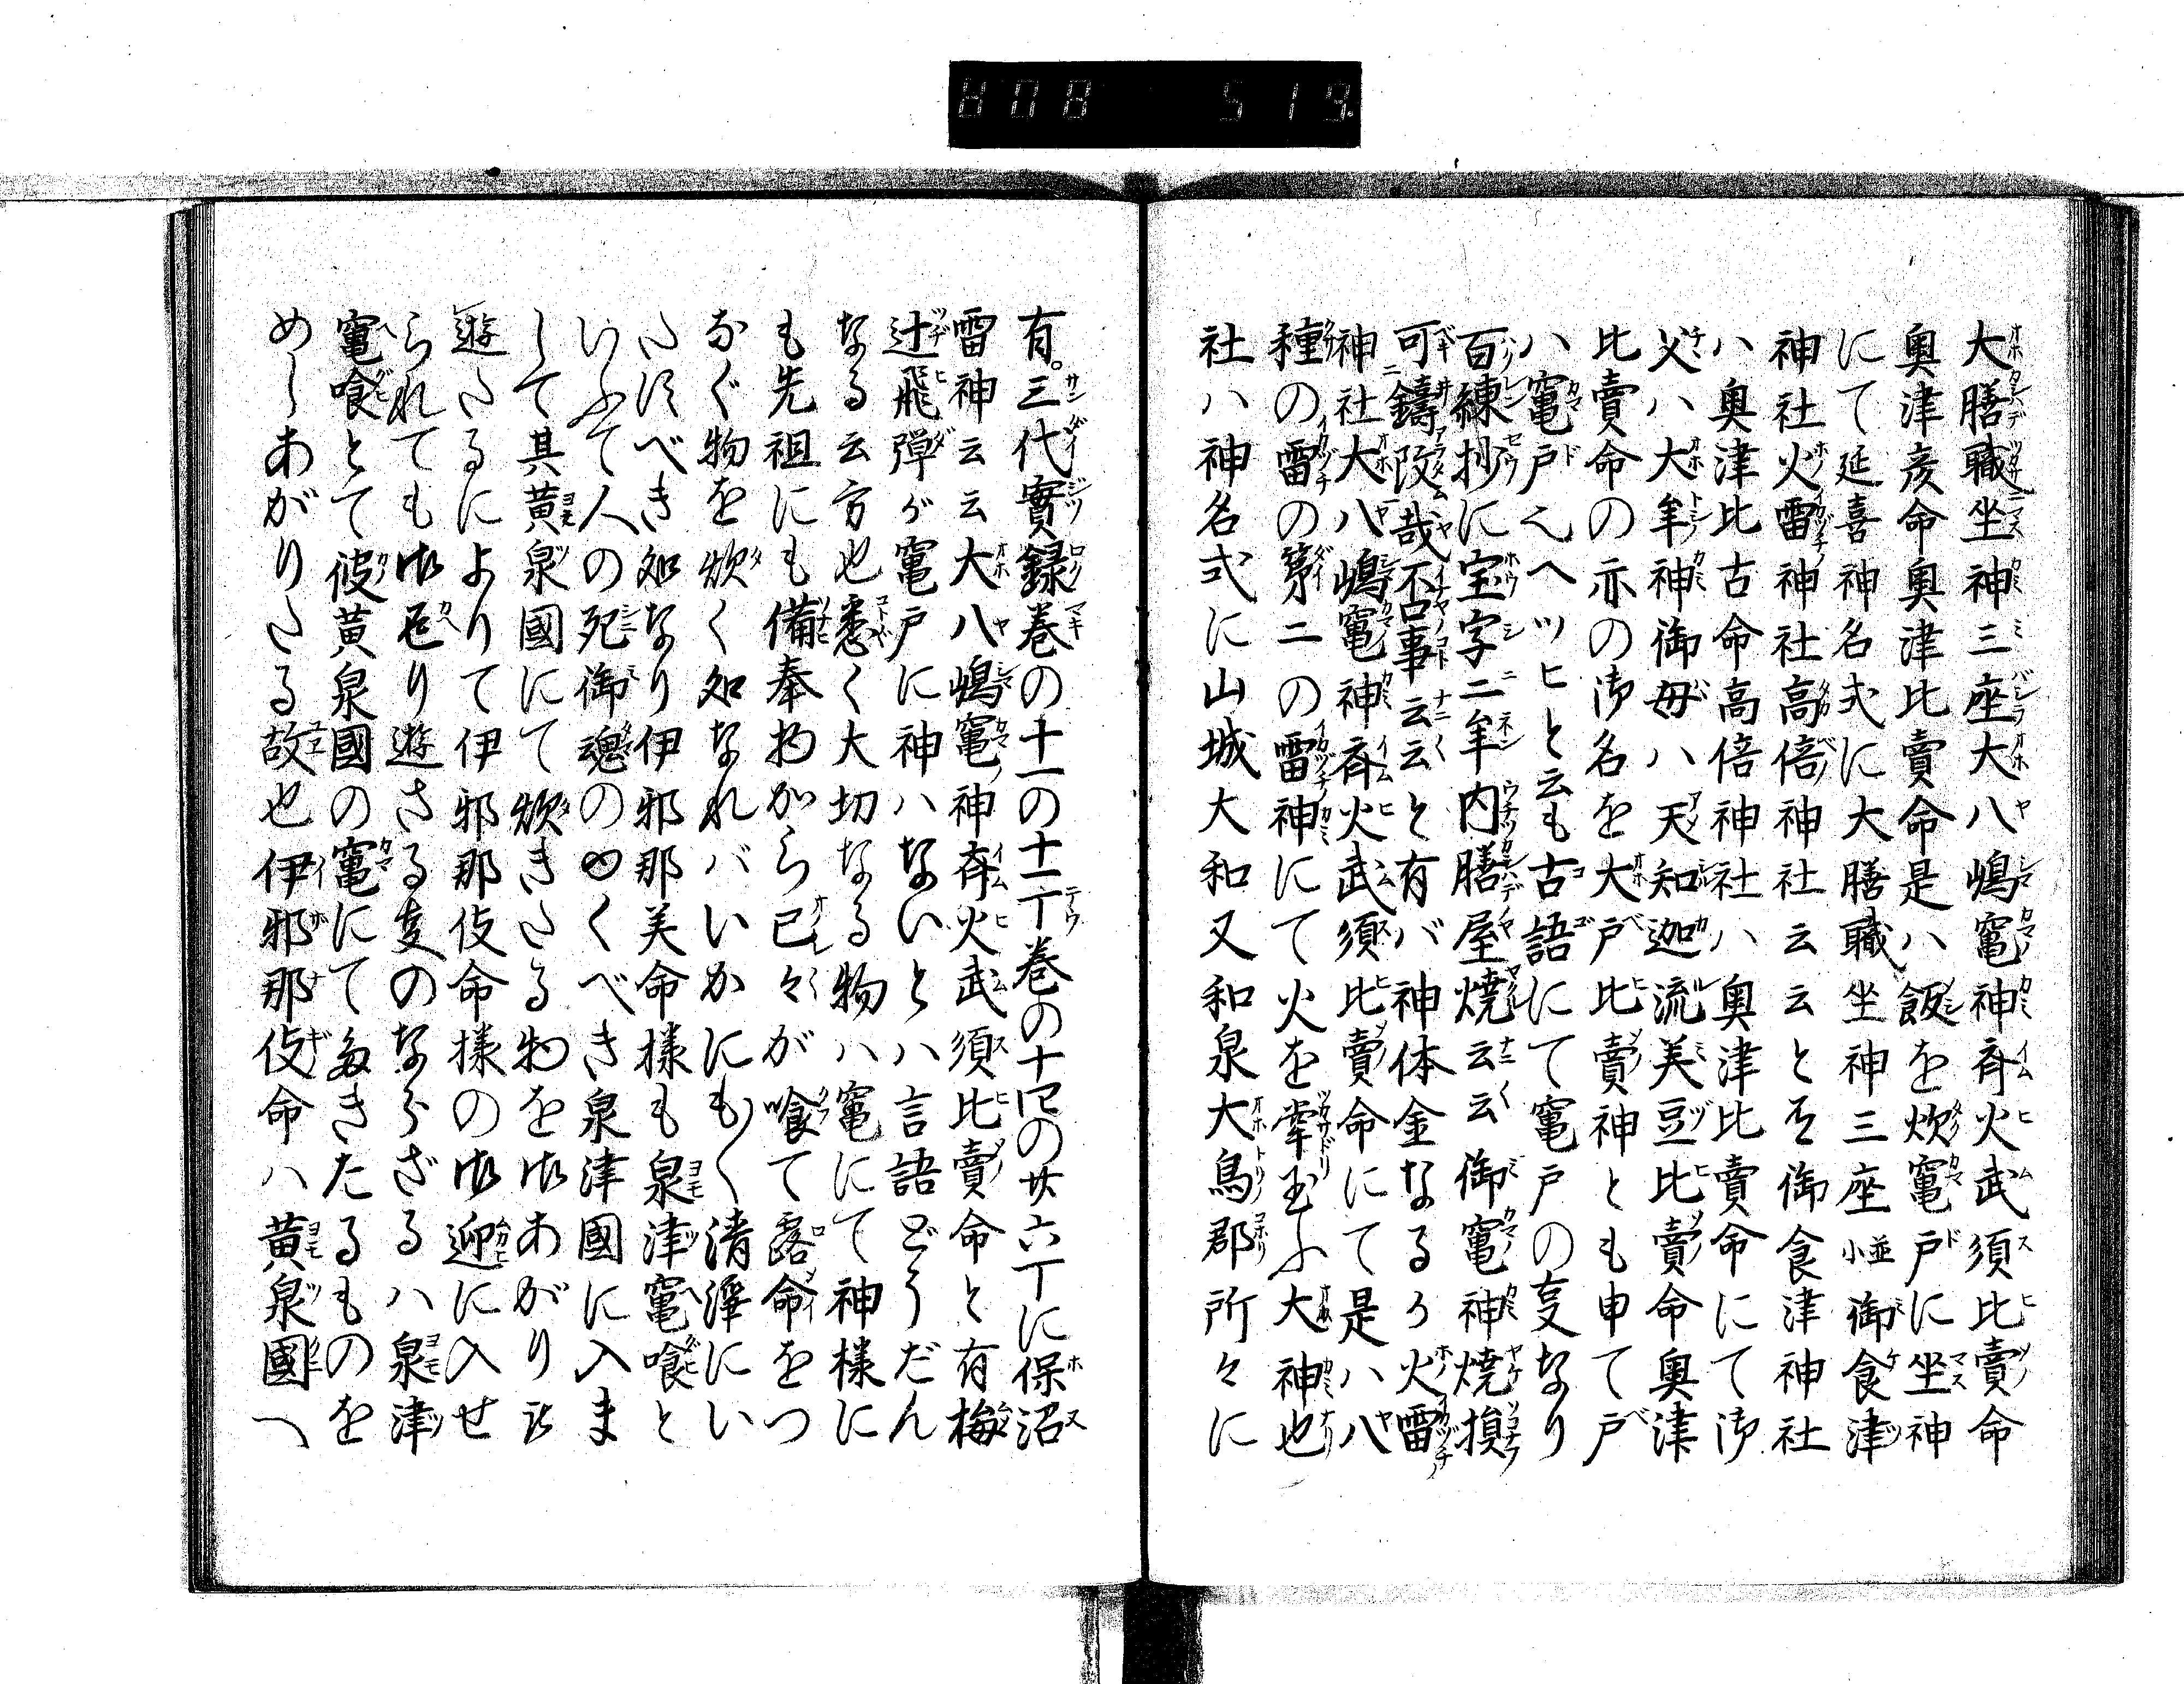 大膳職坐神三座大八嶋竈神斉火武須比賣命
奥津彦命奥津比賣命是ハ飯を炊竈戸に坐神
にて延喜神名式に大膳職坐神三座並小御食津
神社火雷神社高倍神社云云と有御食津神社
ハ奥津比古命高倍神社ハ奥津比賣命にて御
父ハ大年神御母ハ天知迦流美豆比賣命奥津
比賣命の亦の御名を大戸比賣神とも申て戸
ハ竈戸也ヘツヒと云も古語にて竈戸の㕝なり
百練抄に宝字二年内膳屋焼云云御竈神焼損
可鑄改哉不呂事云云と有バ神体金なるか火雷
神社大八嶋竈神斉火武須比賣命にて是ハ八
種の雷の第二の雷神にて火を掌玉ふ大神也
社ハ神名式に山城大和又和泉大鳥郡所々に
有。三代實録巻の十一の十二丁巻の十四の廿六丁に保沼
雷神云云大八嶋竈神斉火武須比賣命と有梅
辻飛彈が竈戸に神ハないとハ言語どうだん
なる云方也悉く大切なる物ハ竈にて神様に
も先祖にも備奉物から己々が喰て露命をつ
なぐ物を炊く処なれバいかにも〱清浄にい
たすべき処なり伊邪那美命様も泉津竈喰と
いふて人の死御魂のゆくべき泉津國に入ま
して其黄泉國にて炊きたる物を御あがり被
遊たるによりて伊邪那伎命様の御迎に入せ
られても御皈り遊さる㕝のならざるハ泉津
竈喰とて彼黄泉國の竈にてたきたるものを
めしあがりたる故也伊邪那伎命ハ黄泉國へ